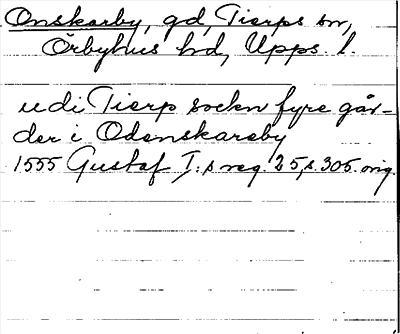 Onskarby, gd, Tierps sn,
Örbyhus hd, Upps. l.
udi Tierp sockn fyre går-
der i Odenskareby
1555 Gustaf I:s reg. 25, s. 305. orig.